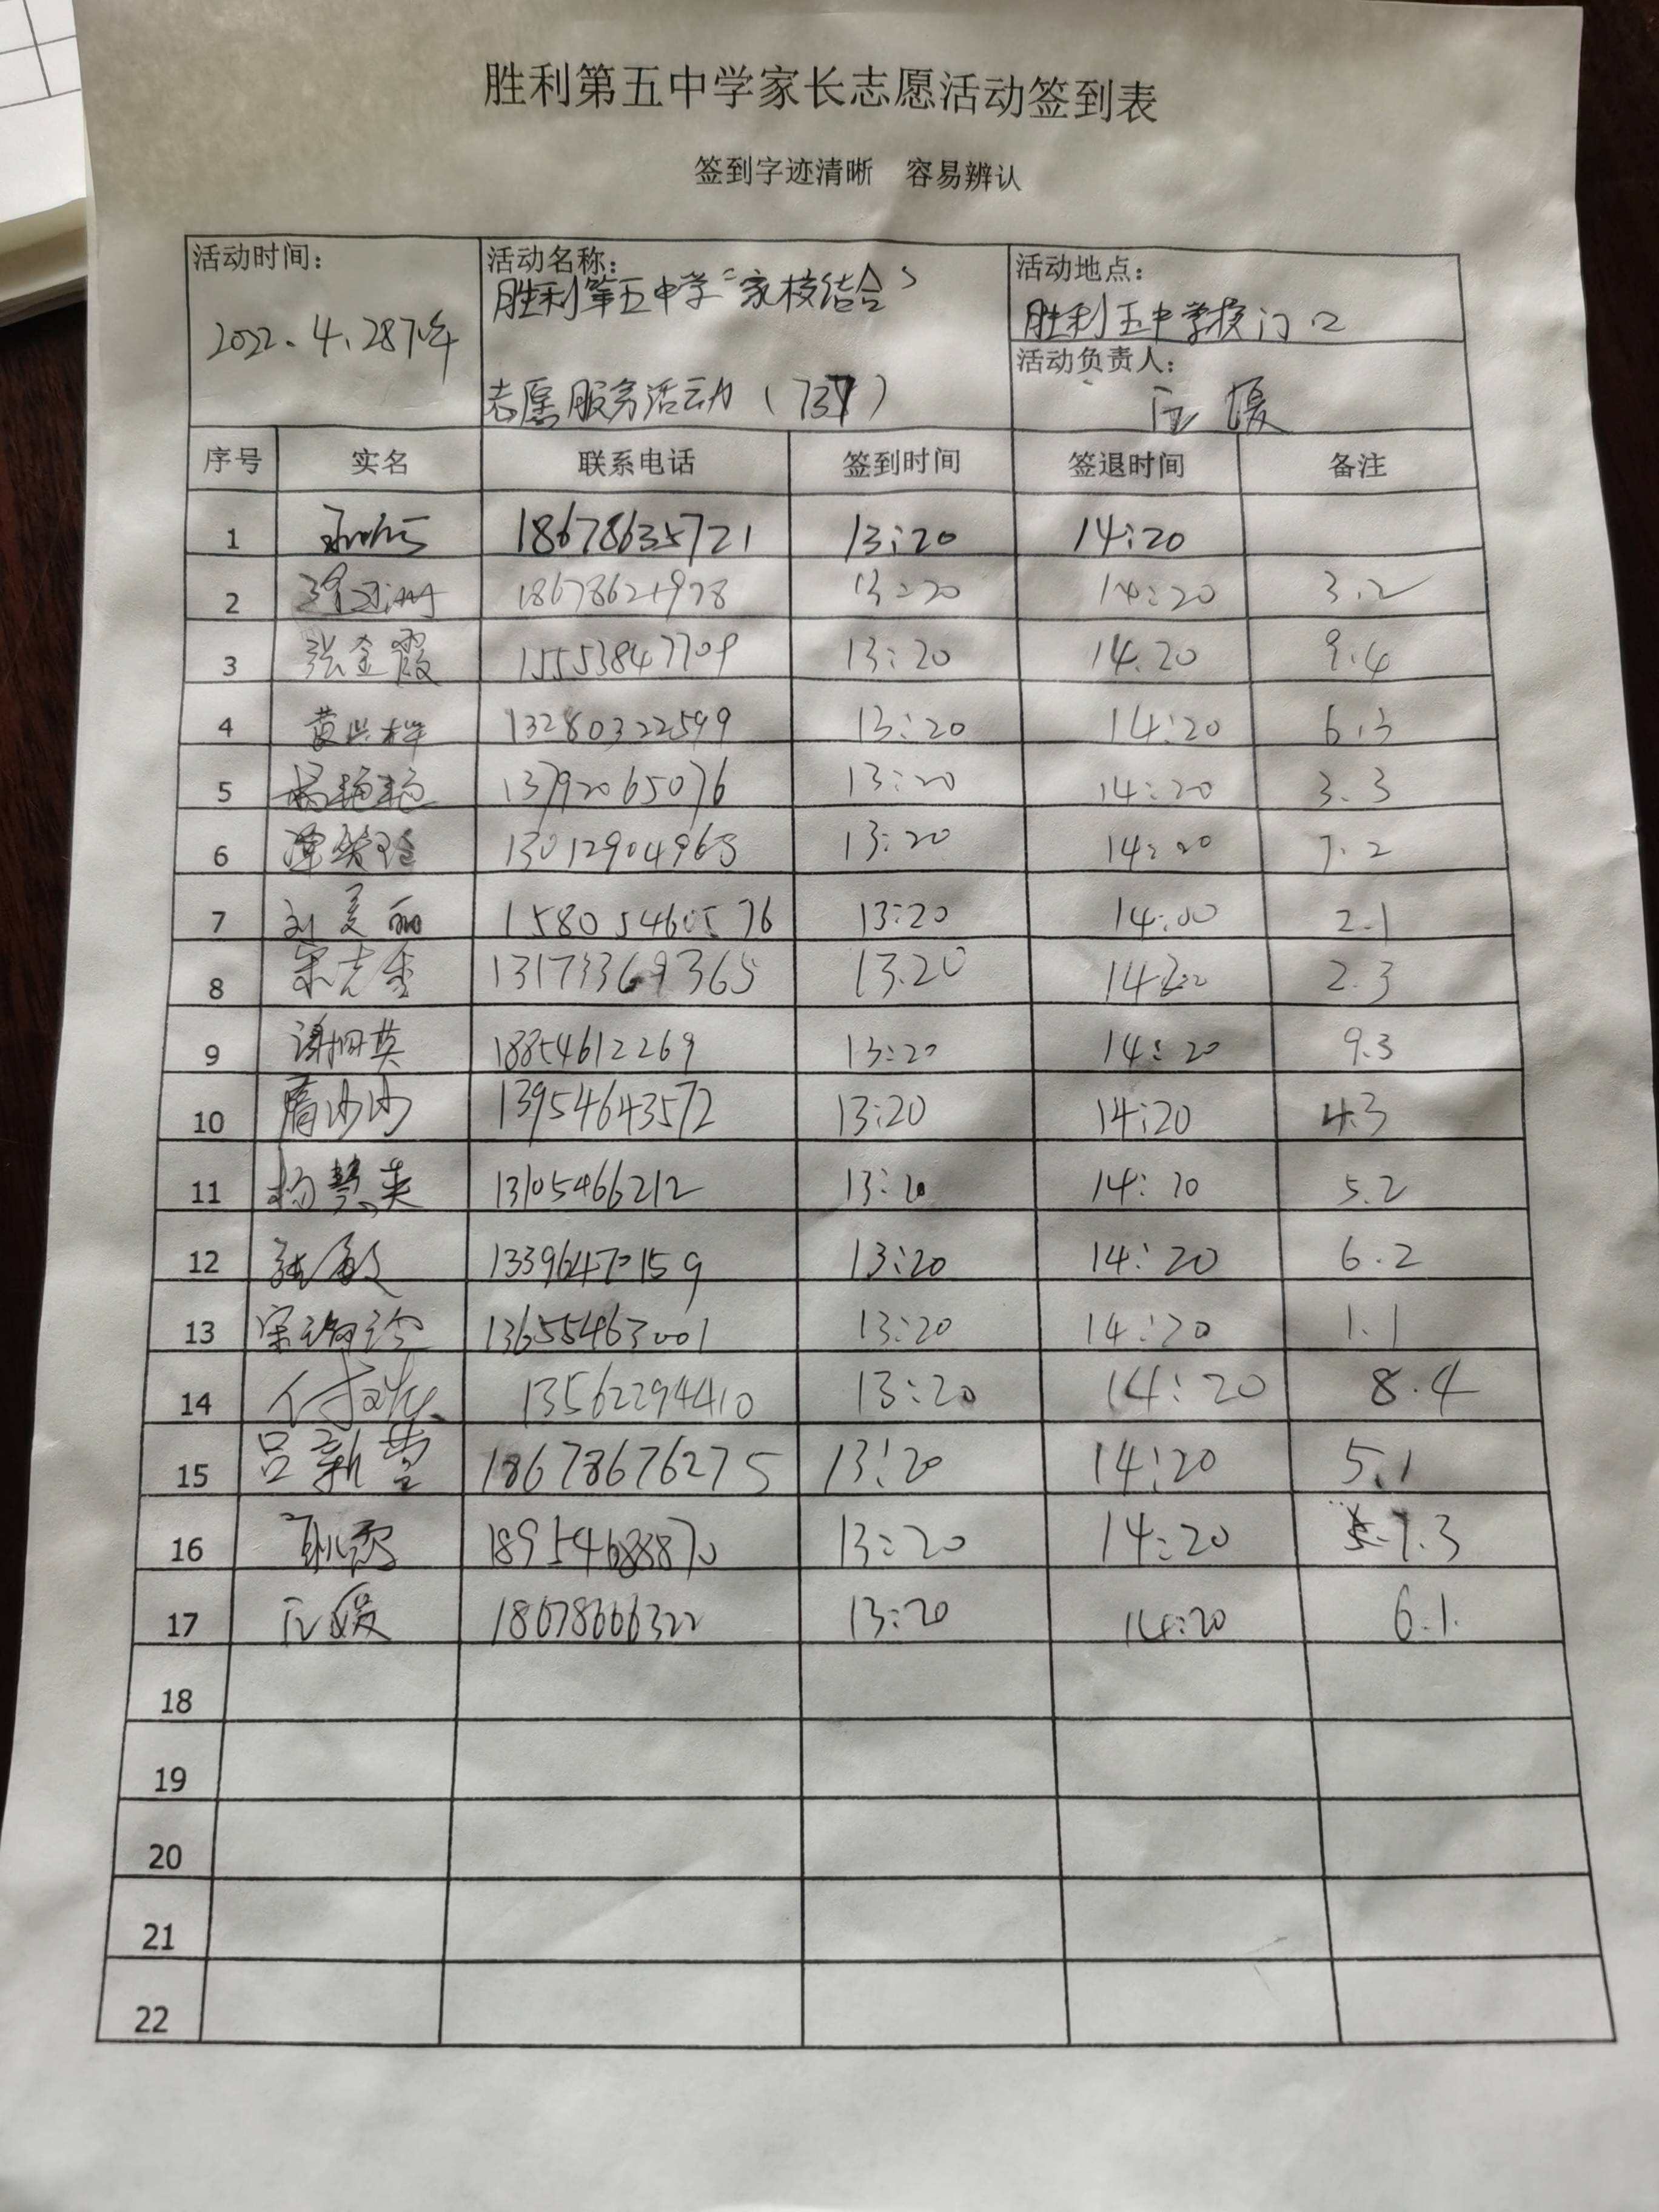 胜利第五中学家长志愿活动签到表
签到字迹清晰 容易辨认
活动时间: 活动名称: 活动地点:
2022.4.28下午 胜利第五中学“家校结合” 胜利五中学校门口
活动负责人:
志愿服务活动(737) 媛
序号 实名 联系电话 签到时间 签退时间 备注
1 18678635721 13:20 14:20
2 18678621978 13:20 14:20 3.2
3 张金霞 15553847709 13:20 14.20 9.4
4 13280322599 13:20 14:20 6.3
5 杨艳艳 13792065076 13:20 14:20 3.3
6 13012904968 13:20 14:20 7.2
7 刘美丽 15805460576 13:20 14:00 2.1
8 宋志香 13173369365 13.20 14:20 2.3
9 谢相英 18854612269 13:20 14:20 9.3
10 13954643572 13:20 14:20 4.3
11 杨慧英 13105466212 13:20 14:20 5.2
12 张敏 13396470159 13:20 14:20 6.2
13 13655463001 13:20 14:20 1.1
14 13562294410 13:20 14:20 8.4
15 吕新莹 18678676275 13:20 14:20 5.1
16 18954688870 13:20 14:20 7.3
17 媛 18678666322 13:20 14:20 6.1.
18
19
20
21
22